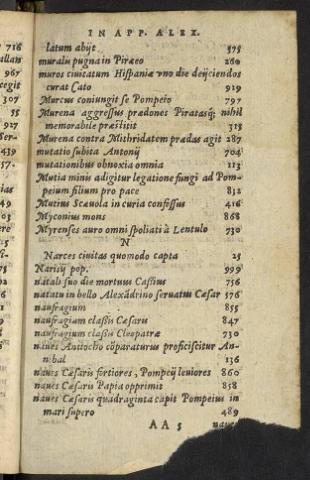 IN APP. ALEX.
latum abijt 575
muralu pugna in Piræeo 260
muros ciuitatum Hispaniæ vno die deijciendos
curat Cato 929
Murcus coniungit se Pompeio 797
Murena aggressus prædones Piratasq; nihil
memorabile præstitit 315
Murena contra Mithridatem prædas agit 287
mutatio subita Antonij 704
mutationibus obnoxia omnia 113
Mutia minis adigitur legatione fungi ad Pom-
peium filium pro pace 832
Mutius Scæuola in curia confissus 416
Myconius mons 868
Myrenses auro omni spoliati à Lentulo 730
N
Narces ciuitas quomodo capta 25
Narisij pop. 999
natali suo die mortuus Cassius 756
natatu in bello Alexãdrino seruatus Cæsar 576
naufragium 855
naufragium classis Cæsaris 847
naufragium classis Cleopatræ 730
naues Antiocho cõparaturus proficiscitur An-
nibal 136
naues Cæsaris fortiores, Pompeij leuiores 860
naues Cæsaris Papia opprimit 858
naues Cæsaris quadraginta capit Pompeius in
mari supero 489
AA 5 naues
716
allan
967
cegit
307
55
927
Ser-
439
57-
ias
49
03
0
5
75